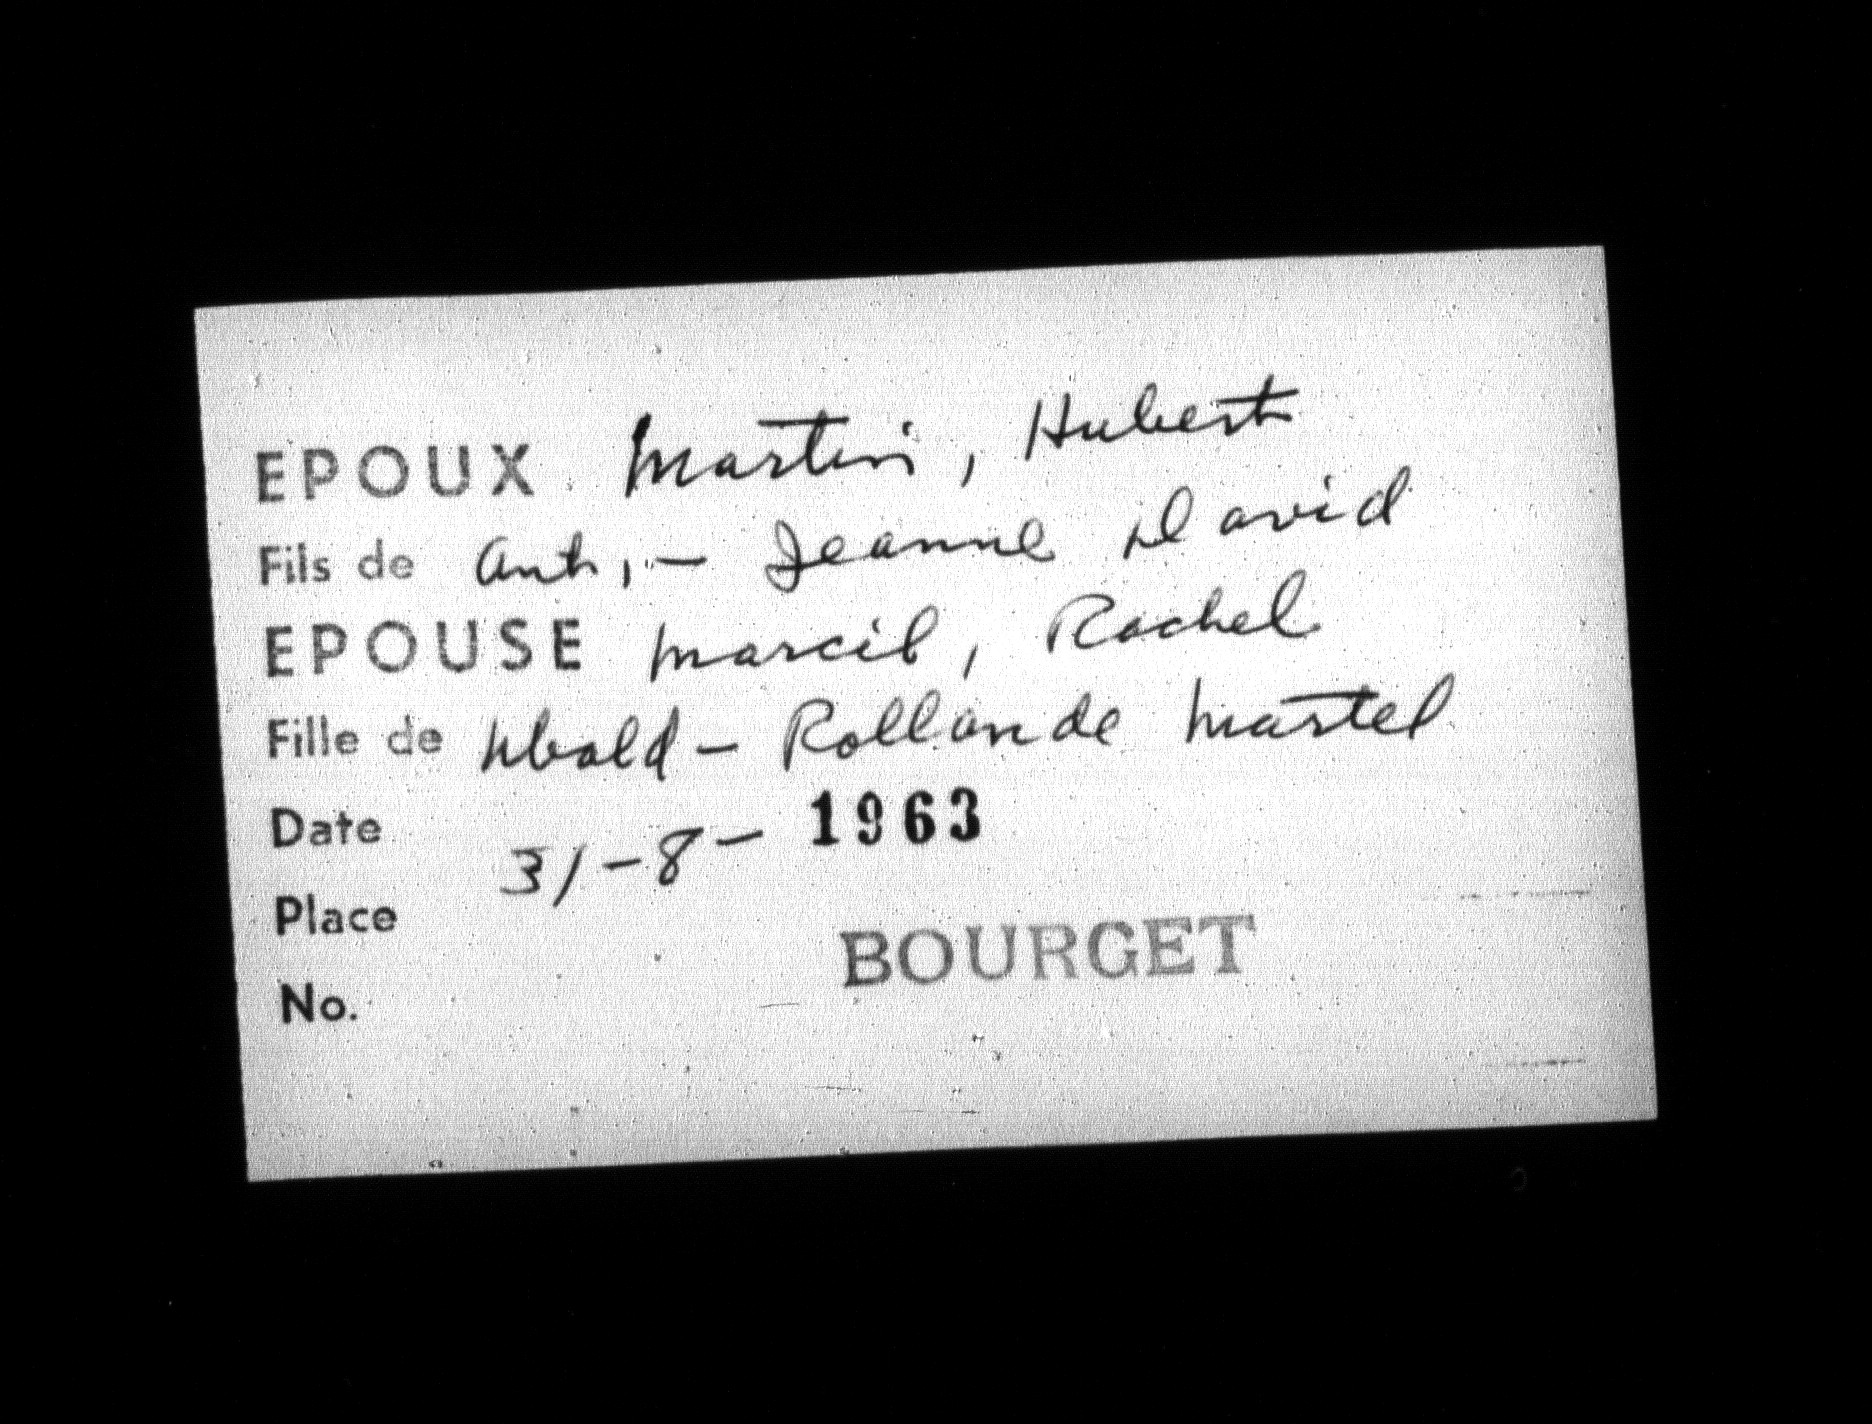 EPOUX Martin, Hubert
Fils de Ant, - Jeanne David
EPOUSE Marcil, Rachel
Fille de Ubald - Rollande Martel
Date 31-8-1963
Place BOURGET
No.